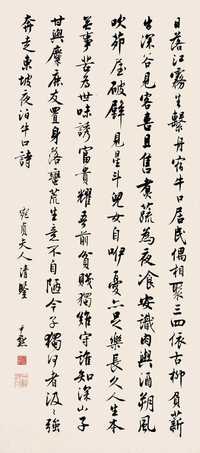 日落江霧生繫舟宿牛口居民偶相聚三四依古柳負薪
出深谷見客喜且售煮蔬為夜飡安識肉與酒朔風
吹茆屋破壁見星斗兒女自咿嚘亦足樂長久人生本
無事苦為世味誘富貴耀吾前貧賤獨難守誰知深山子
甘與麋鹿友置身落蠻荒生意不自陋今予獨何者汲汲強
奔走東坡夜泊牛口詩
貞夫人清鑒
尹默